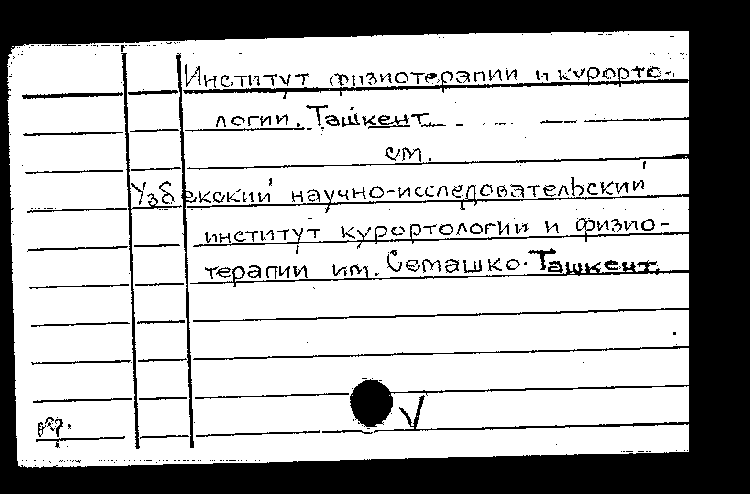 Институт физиотерапии и курорто-
логии. Ташкент
см.
Узбекский научно-исследовательский
институт курортологии и физио-
терапии им. Семашко. Ташкент.